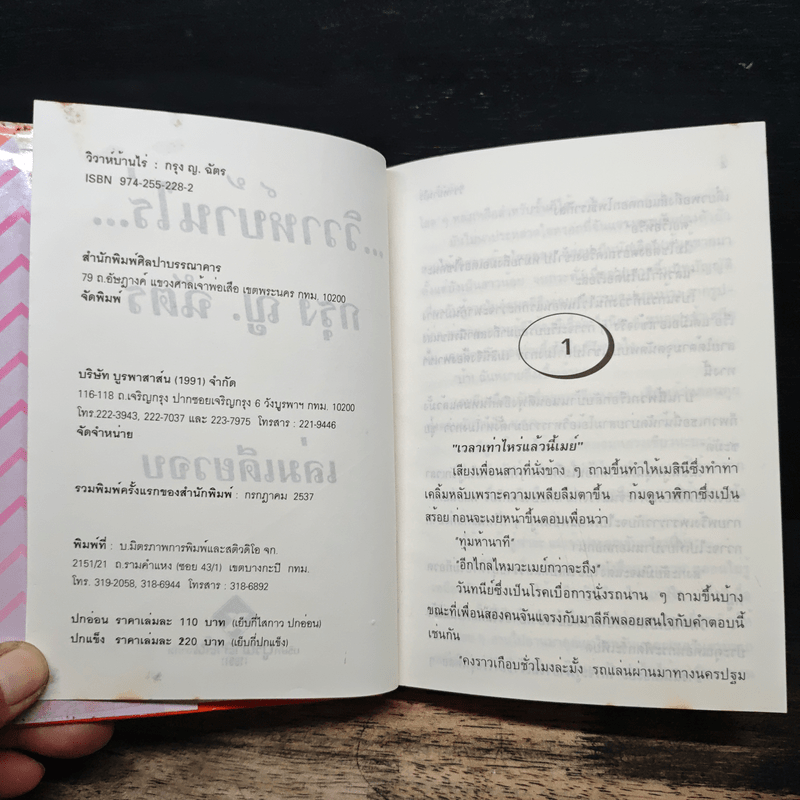 วิวาห์บ้านไร่ : กรุง ญ. ฉัตร
ISBN 974-255-228-2
สำนักพิมพ์ศิลปาบรรณาคาร
79 ถ.อัษฎางค์ แขวงศาลเจ้าพ่อเสือ เขตพระนคร กทม. 10200
จัดพิมพ์
บริษัท บูรพาสาส์น (1991) จำกัด
116-118 ถ.เจริญกรุง ปากซอยเจริญกรุง 6 วังบูรพาฯ กทม. 10200
โทร.222-3943, 222-7037 และ 223-7975 โทรสาร : 221-9446
จัดจำหน่าย
รวมพิมพ์ครั้งแรกของสำนักพิมพ์ : กรกฎาคม 2537
พิมพ์ที่ : บ.มิตรภาพการพิมพ์และสติวดิโอ จก.
2151/21 ถ.รามคำแหง (ซอย 43/1) เขตบางกะปิ กทม.
โทร. 319-2058, 318-6944 โทรสาร : 318-6892
ปกอ่อน ราคาเล่มละ 110 บาท (เย็บกี่ไสกาว ปกอ่อน)
ปกแข็ง ราคาเล่มละ 220 บาท (เย็บกี่ปกแข็ง)
1
"เวลาเท่าไหร่แล้วนี้เมย์"
เสียงเพื่อนสาวที่นั่งข้าง ๆ ถามขึ้นทำให้เมสินีซึ่งทำท่า
เคลิ้มหลับเพราะความเพลียลืมตาขึ้น ก้มดูนาฬิกาซึ่งเป็น
สร้อย ก่อนจะเงยหน้าขึ้นตอบเพื่อนว่า
"ทุ่มห้านาที"
"อีกไกลไหมวะเมย์กว่าจะถึง"
วันทนีย์ซึ่งเป็นโรคเบื่อการนั่งรถนาน ๆ ถามขึ้นบ้าง
ขณะที่เพื่อนสองคนจันแจรงกับมาลีก็พลอยสนใจกับคำตอบนี้
เช่นกัน
"คงราวเกือบชั่วโมงล่ะมั้ง รถแล่นผ่านมาทางนครปฐม